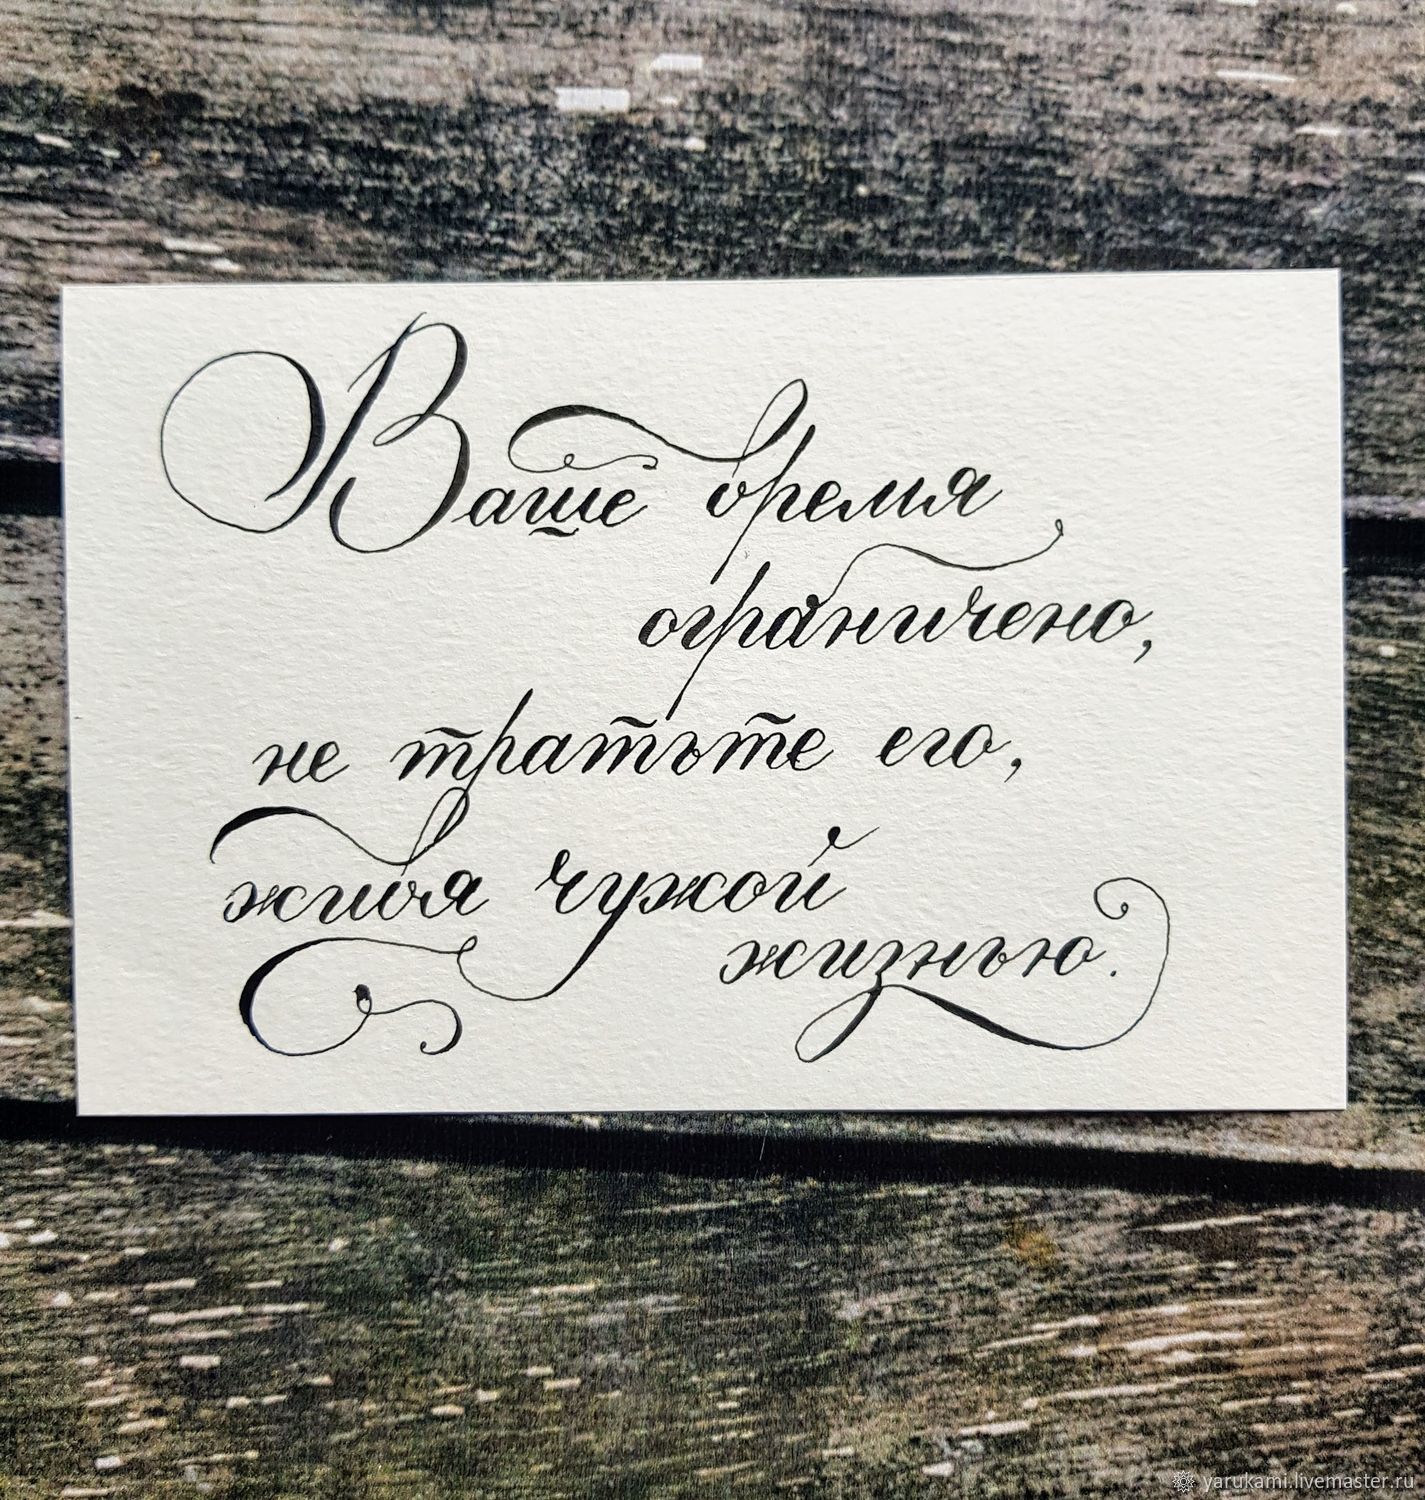 Ваше время
ограничено,
не тратьте его,
живя чужой
жизнью.
yarukami.livemaster.ru